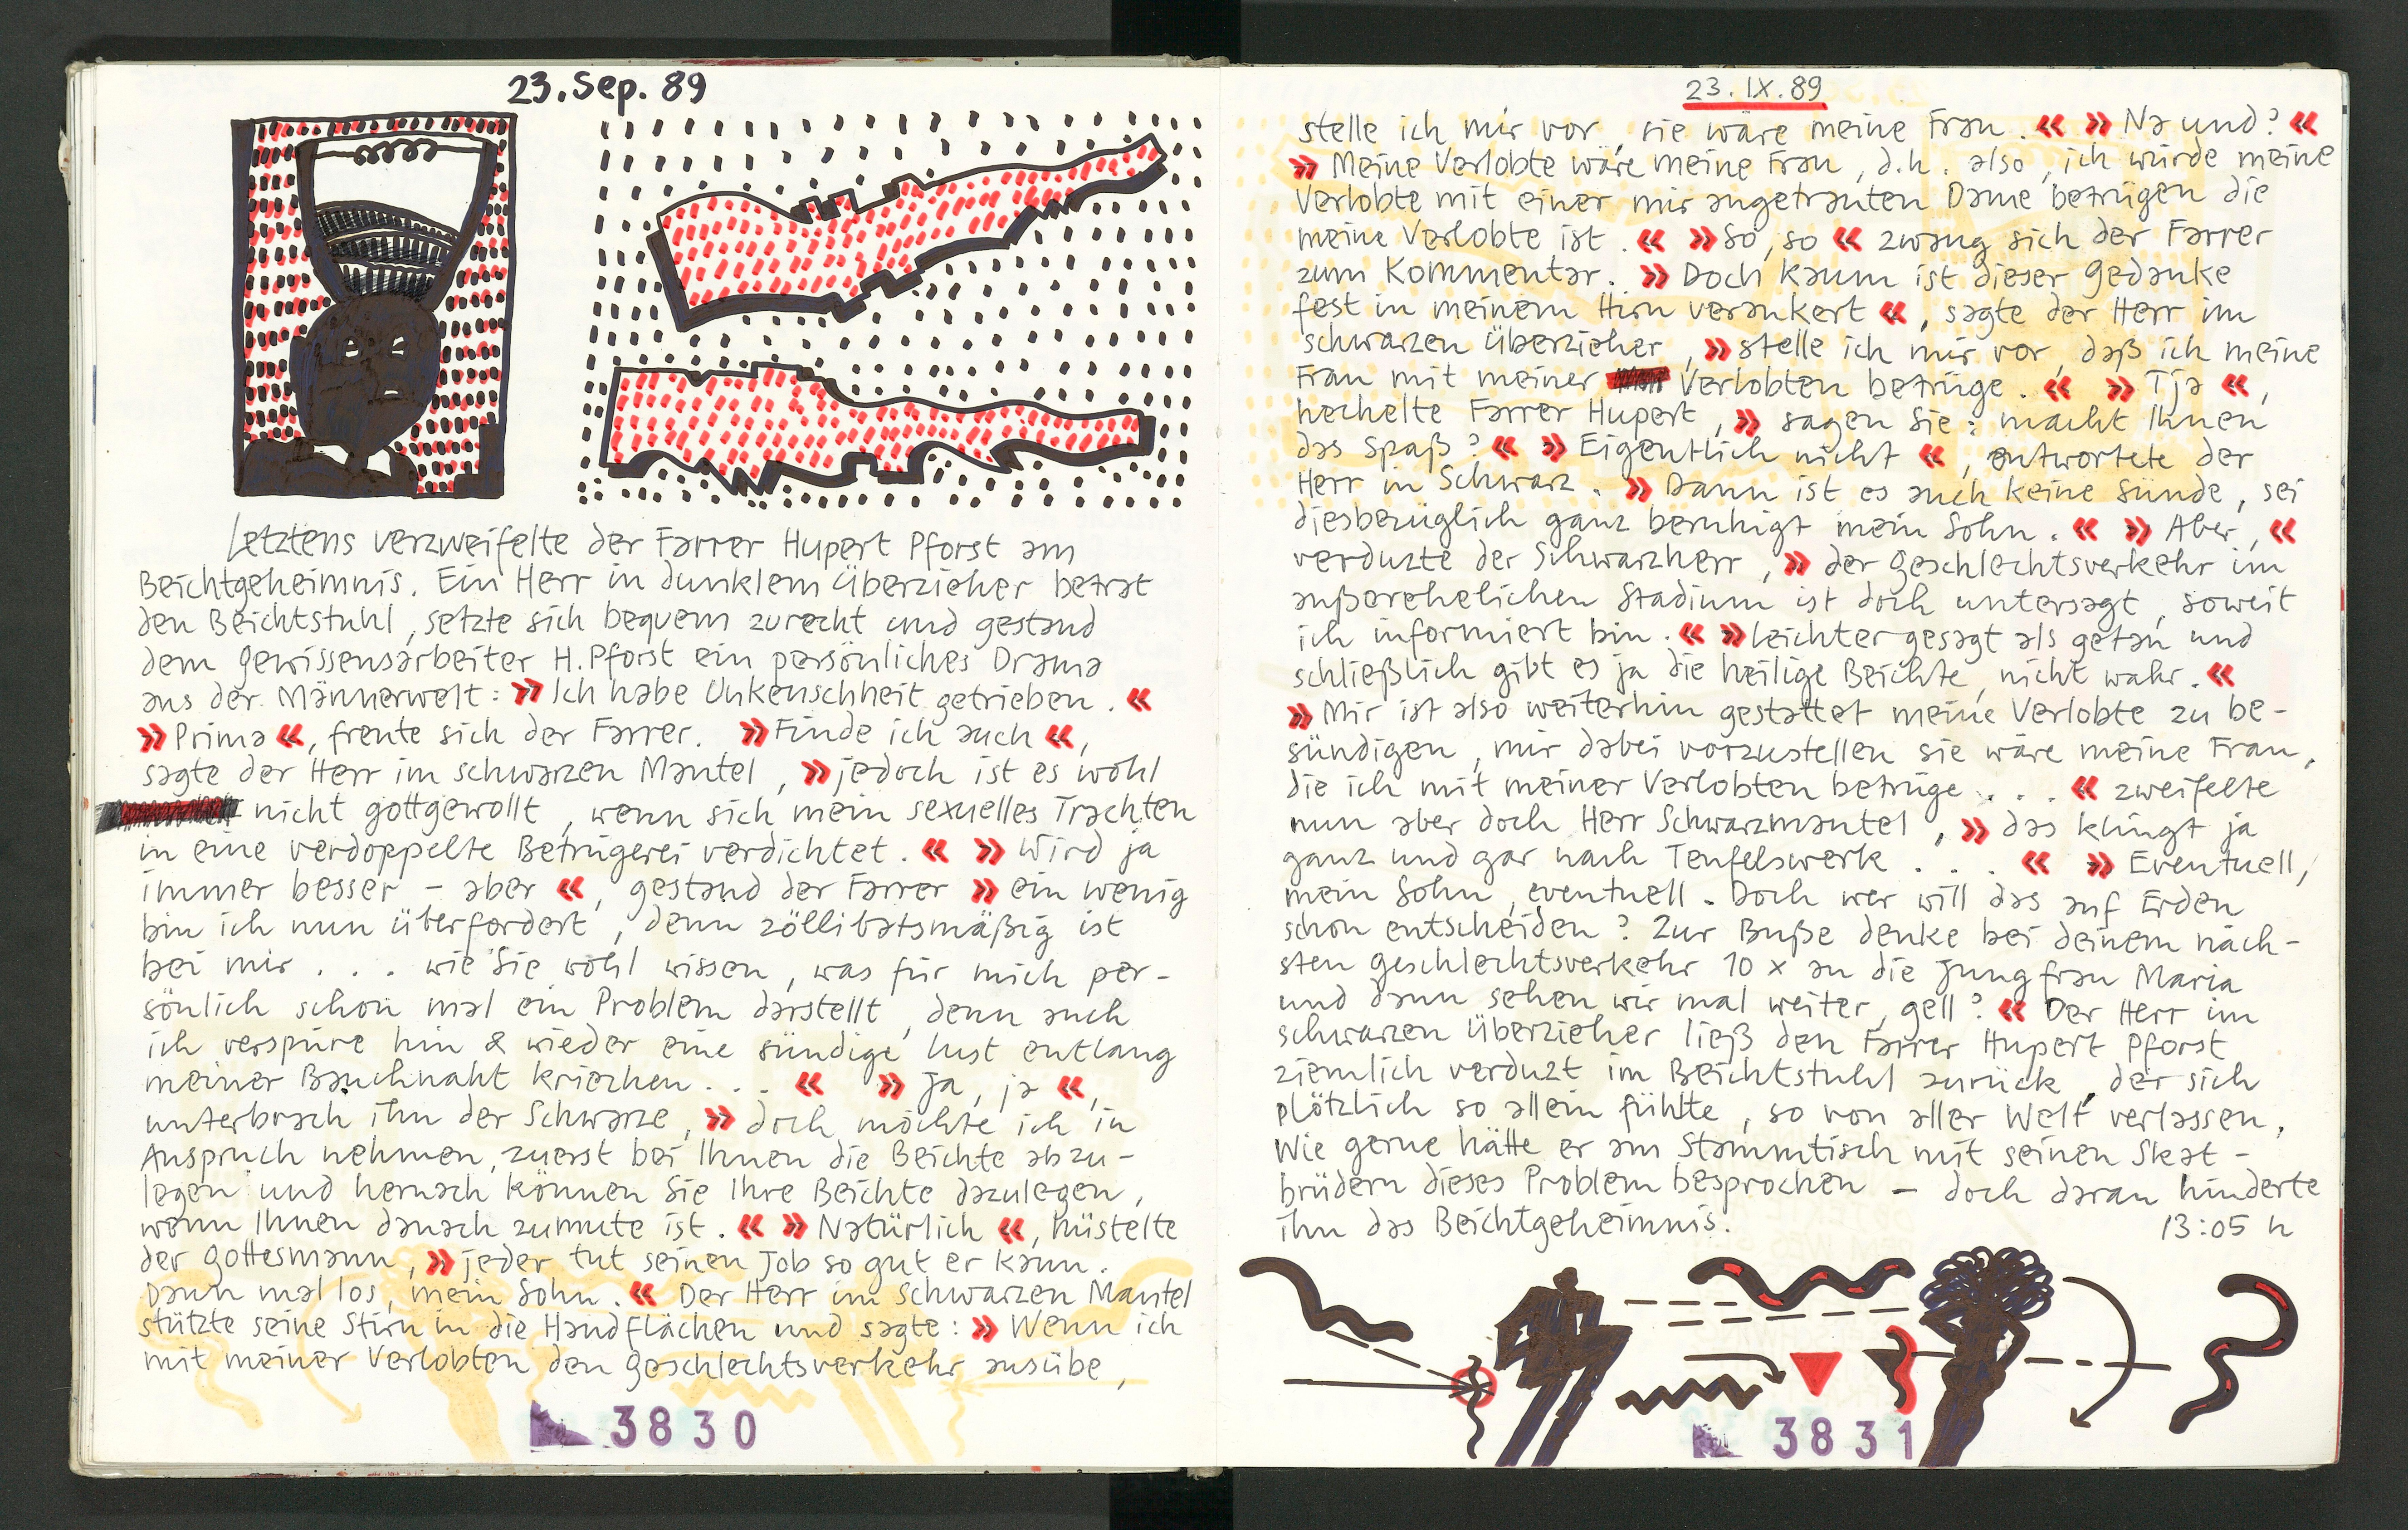 23.Sep. 89
Letztens verzweifelte der Farrer Hupert Pforst am
Beichtgeheimnis. Ein Herr in dunklem Überzieher betrat
den Beichtstuhl, setzte sich bequem zurecht und gestand
dem Gewissensarbeiter H.Pforst ein persönliches Drama
aus der Männerwelt: »Ich habe Unkenschheit getrieben.«
»Prima«, freute sich der Farrer. »Finde ich auch«,
sagte der Herr im schwarzen Mantel, »jedoch ist es wohl
nicht gottgewollt, wenn sich mein sexuelles Trachten
in eine verdoppelte Betrügerei verdichtet.« »Wird ja
immer besser - aber«, gestand der Farrer »ein wenig
bin ich nun überfordert, denn zöllibatsmäßig ist
bei mir ... wie Sie wohl wissen, was für mich per-
sönlich schon mal ein Problem darstellt, denn auch
ich verspüre hin & wieder eine sündige Lust entlang
meiner Bauchnaht kriechen...« »Ja, ja«,
unterbrach ihn der Schwarze, »doch möchte ich in
Anspruch nehmen, zuerst bei Ihnen die Beichte abzu-
legen und hernach können Sie Ihre Beichte dazulegen,
wenn Ihnen danach zumute ist.« »Natürlich«, hüstelte
der Gottesmann, »jeder tut seinen Job so gut er kann.
Dann mal los, mein Sohn.« Der Herr im schwarzen Mantel
stützte seine Stirn in die Handflächen und sagte: »Wenn ich
mit meiner Verlobten den Geschlechtsverkehr ausübe,
3830
23.IX.89
stelle ich mir vor, sie wäre meine Frau.« »Na und?«
»Meine Verlobte wäre meine Frau, d.h. also, ich würde meine
Verlobte mit einer mir angetrauten Dame betrügen die
meine Verlobte ist.« »So, so« zwang sich der Farrer
zum Kommentar. »Doch kaum ist dieser Gedanke
fest in meinem Hirn verankert«, sagte der Herr im
schwarzen Überzieher, »stelle ich mir vor, daß ich meine
Frau mit meiner Verlobten betrüge.« »Tja«,
hechelte Farrer Hupert, »sagen Sie: macht Ihnen
das Spaß?« »Eigentlich nicht«, antwortete der
Herr in Schwarz. »Dann ist es auch keine Sünde, sei
diesbezüglich ganz beruhigt mein Sohn.« »Aber,«
verduzte der Schwarzherr, »der Geschlechtsverkehr im
außerehelichen Stadium ist doch untersagt, soweit
ich informiert bin.« »Leichter gesagt als getan und
schließlich gibt es ja die heilige Beichte, nicht wahr.«
»Mir ist also weiterhin gestattet meine Verlobte zu be-
sündigen, mir dabei vorzustellen sie wäre meine Frau,
die ich mit meiner Verlobten betrüge ...« zweifelte
nun aber doch Herr Schwarzmantel, »das klingt ja
ganz und gar nach Teufelswerk ...« »Eventuell,
mein Sohn, eventuell. Doch wer will das auf Erden
schon entscheiden? Zur Buße denke bei deinem näch-
sten Geschlechtsverkehr 10 x an die Jungfrau Maria
und dann sehen wir mal weiter, gell?« Der Herr im
schwarzen Überzieher ließ den Farrer Hupert Pforst
ziemlich verduzt im Beichtstuhl zurück, der sich
plötzlich so allein fühlte, so von aller Welt verlassen.
Wie gerne hätte er am Stammtisch mit seinen Skat-
brüdern dieses Problem besprochen - doch daran hinderte
ihn das Beichtgeheimnis. 13:05 h
3831